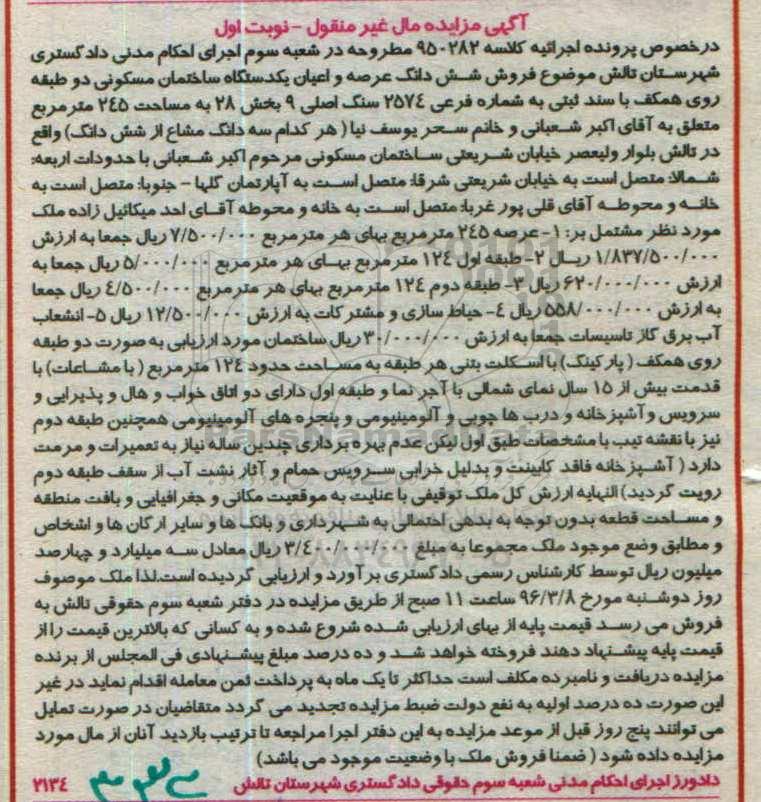 آگهی مزایده مال غیر منقول - نوبت اول
درخصوص پرونده اجرائیه کلاسه ۹۵۰۲۸۲ مطروحه در شعبه سوم اجرای احکام مدنی دادگستری
شهرستان تالش موضوع فروش شش دانگ عرصه و اعیان یکدستگاه ساختمان مسکونی دو طبقه
روی همکف با سند ثبتی به شماره فرعی ۲۵۷٤ سنگ اصلی ۹ بخش ۲۸ به مساحت ۲٤۵ مترمربع
متعلق به آقای اکبر شعبانی و خانم سحر یوسف نیا ( هر کدام سه دانگ مشاع از شش دانگ) واقع
در تالش بلوار ولیعصر خیابان شریعتی ساختمان مسکونی مرحوم اکبر شعبانی با حدودات اربعه:
شمالا: متصل است به خیابان شریعتی شرقا: متصل است به آپارتمان گلها - جنوبا: متصل است به
خانه و محوطه آقای قلی پور غربا: متصل است به خانه و محوطه آقای احد میکائیل زاده ملک
مورد نظر مشتمل بر: ۱- عرصه ۲٤۵ متر مربع بهای هر مترمربع ۷/۵۰۰/۰۰۰ ریال جمعا به ارزش
۱/۸۳۷/۵۰۰/۰۰۰ ریال ۲- طبقه اول ۱۲٤ مترمربع بهای هر مترمربع ۵/۰۰۰/۰۰۰ ریال جمعا به
ارزش ۶۲۰/۰۰۰/۰۰۰ ریال ۳- طبقه دوم ۱۲٤ متر مربع بهای هر مترمربع ٤/۵۰۰/۰۰۰ ریال جمعا
به ارزش ۵۵۸/۰۰۰/۰۰۰ ریال ٤- حیاط سازی و مشترکات به ارزش ۱۲/۵۰۰/۰۰۰ ریال ۵- انشعاب
آب برق گاز تاسیسات جمعا به ارزش ۳۰/۰۰۰/۰۰۰ ریال ساختمان مورد ارزیابی به صورت دو طبقه
روی همکف ( پارکینگ) با اسکلت بتنی هر طبقه به مساحت حدود ۱۲٤ مترمربع ( با مشاعات) با
قدمت بیش از ۱۵ سال نمای شمالی با آجر نما و طبقه اول دارای دو اتاق خواب و هال و پذیرایی و
سرویس و آشپزخانه و درب ها چوبی و آلومینیومی و پنجره های آلومینیومی همچنین طبقه دوم
نیز با نقشه تیپ با مشخصات طبق اول لیکن عدم بهره برداری چندین ساله نیاز به تعمیرات و مرمت
دارد ( آشپزخانه فاقد کابینت و بدلیل خرابی سرویس حمام و آثار نشت آب از سقف طبقه دوم
رویت گردید) النهایه ارزش کل ملک توقیفی با عنایت به موقعیت مکانی و جغرافیایی و بافت منطقه
و مساحت قطعه بدون توجه به بدهی احتمالی به شهرداری و بانک ها و سایر ارکان ها و اشخاص
و مطابق وضع موجود ملک مجموعا به مبلغ ۳/٤۰۰/۰۰۰/۰۰۰ ریال معادل سه میلیارد و چهارصد
میلیون ریال توسط کارشناس رسمی دادگستری برآورد و ارزیابی گردیده است.لذا ملک موصوف
روز دوشنبه مورخ ۹۶/۳/۸ ساعت ۱۱ صبح از طریق مزایده در دفتر شعبه سوم حقوقی تالش به
فروش می رسد قیمت پایه از بهای ارزیابی شده شروع شده و به کسانی که بالاترین قیمت را از
قیمت پایه پیشنهاد دهند فروخته خواهد شد و ده درصد مبلغ پیشنهادی فی المجلس از برنده
مزایده دریافت و نامبرده مکلف است حداکثر تا یک ماه به پرداخت ثمن معامله اقدام نماید در غیر
این صورت ده درصد اولیه به نفع دولت ضبط مزایده تجدید می گردد متقاضیان در صورت تمایل
می توانند پنج روز قبل از موعد مزایده به این دفتر اجرا مراجعه تا ترتیب بازدید آنان از مال مورد
مزایده داده شود ( ضمنا فروش ملک با وضعیت موجود می باشد)
دادورز اجرای احکام مدنی شعبه سوم حقوقی دادگستری شهرستان تالش ۲۱۳٤